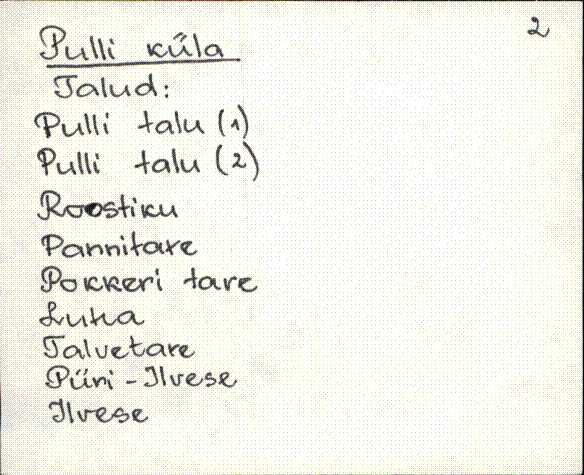 2
Pulli küla
Talud:
Pulli talu (1)
Pulli talu (2)
Roostiku
Pannitare
Pokkeri tare
Luha
Talvetare
Püri - Ilvese
Ilvese